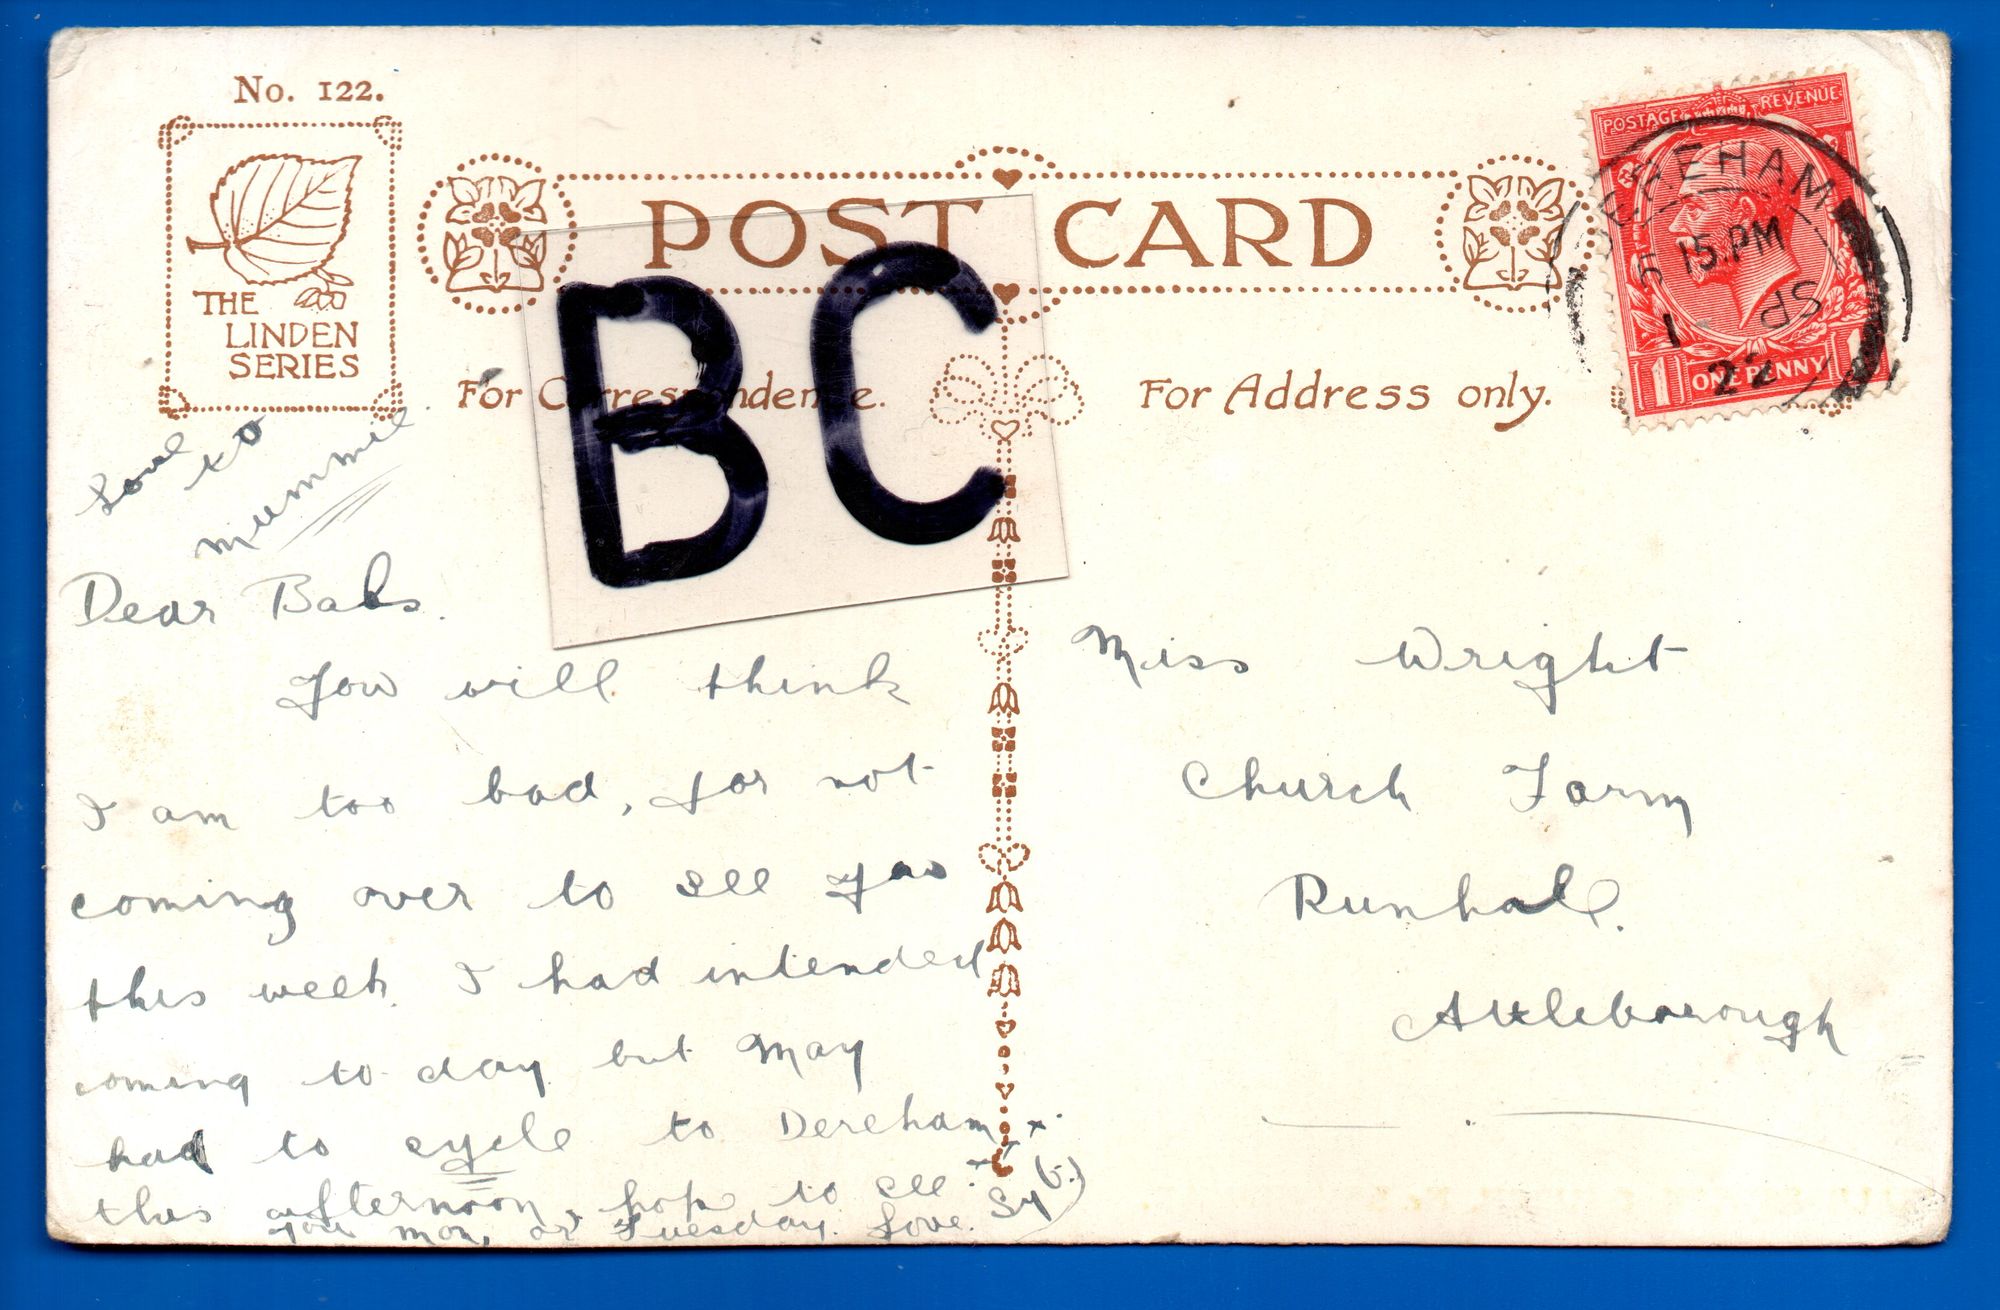 No. 122.
THE
LINDEN
SERIES
POST CARD
For Correspondence.
For Address only.
POSTAGE REVENUE
ONE PENNY
1 1
DEREHAM
5.15.PM
1 SP
22
BC
Love to
Mummie
Dear Babs.
You will think
I am too bad, for not
coming over to see you
this week. I had intended
coming to day but May
had to cycle to Dereham
this afternoon, hope to see
you mon, or Tuesday. Love.
Miss Wright
Church Farm
Runhal.
Attleborough